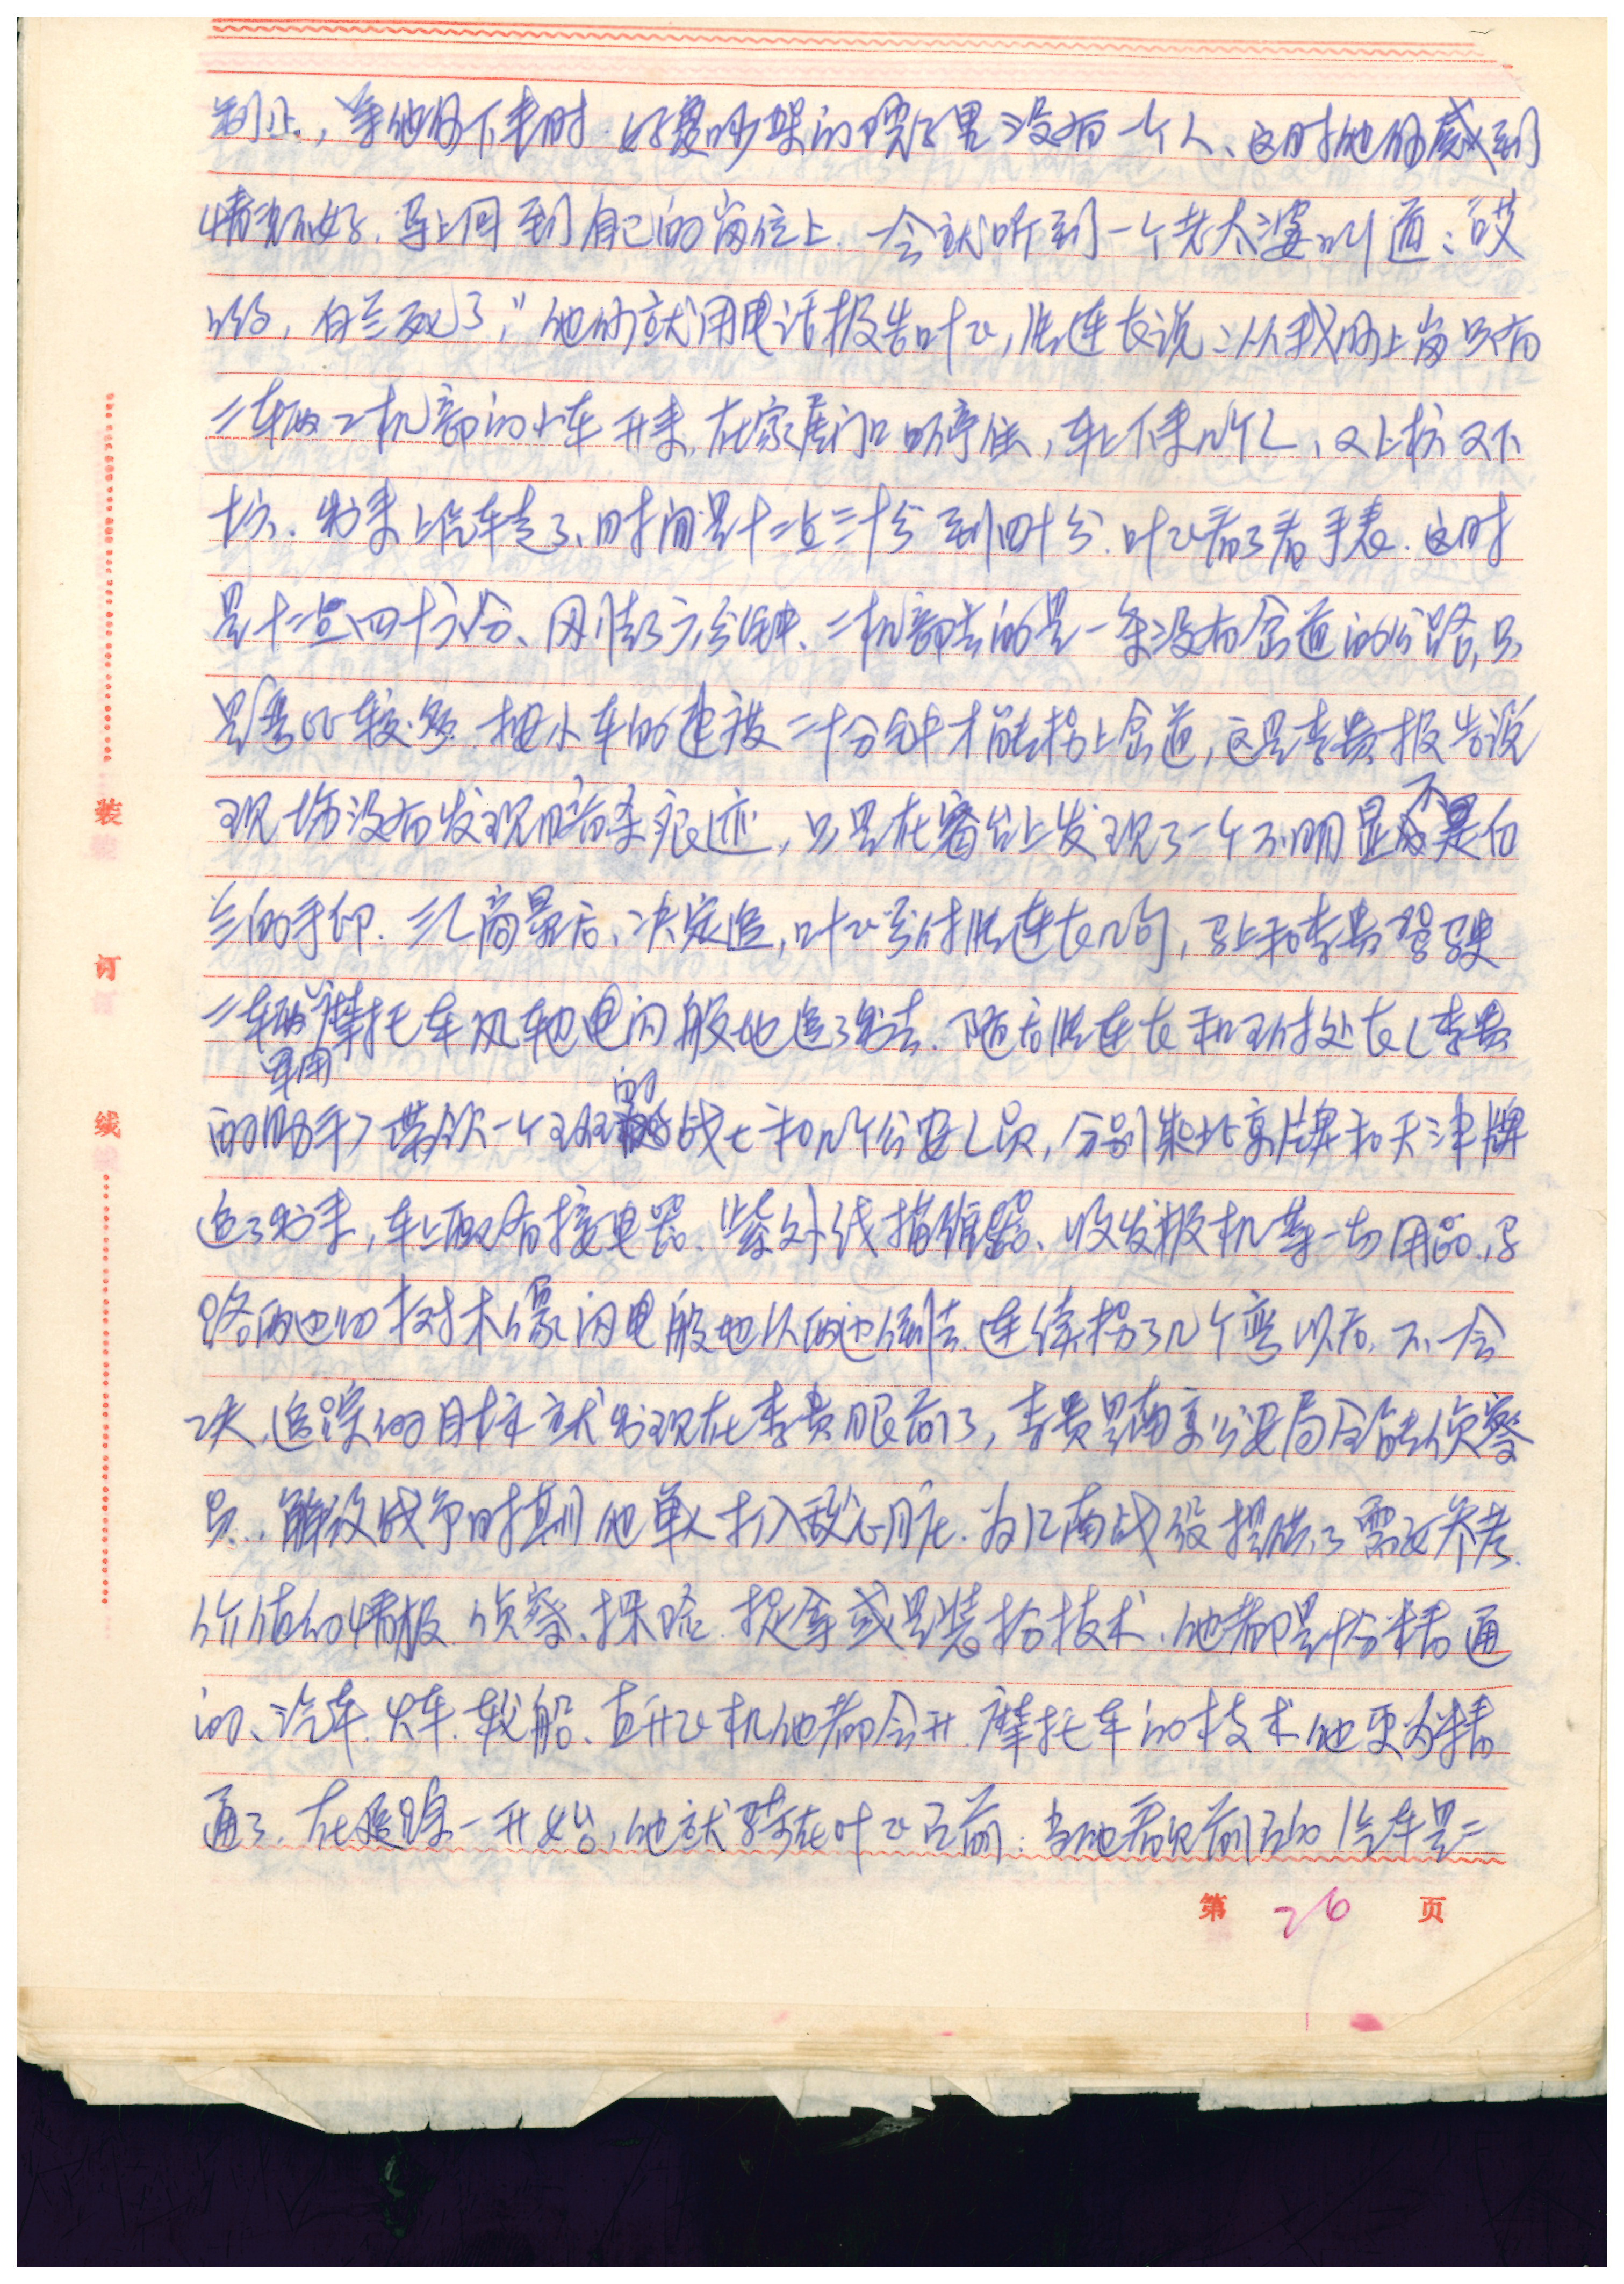 制止，等他们下来时，好复吵架的院子里没有一个人、这时他们感到
情况不好，马上回到自己的岗位上，一会就听到一个老太婆叫道：“哎
哟，白兰死了，”他们就用电话报告叶飞，张连长说：从我们上岗只有
二辆二机部的小车开来，在家属门口停住，车上下来几个人，又上楼又下
楼，出来上汽车走了、时间是十二点三十分到四十分，叶飞看了看手表，这时
是十二点四十六分、刚走了六分钟、二机部去的是一条没有岔道的公路，只
是弯比较多，按小车的速度二十分钟才能拐上岔道，这是李贵报告说
现场没有发现暗杀痕迹，只是在窗台上发现了一个不明显不是白
兰的手印，三人商量后，决定追，叶飞吩咐张连长几句，马上和李贵驾驶
二辆军用摩托车风驰电闪般地追了出去，随后张连长和王付处长（李贵
的助手）带领一个班的战士和几个公安人员，分别乘北京牌和天津牌
追了出来，车上配有接电器、紫外线描 器、收发报机等一切用品，马
路两边的树木像闪电般地从两边倒去，连续拐了几个弯以后，不一会
工夫，追踪的目标就出现在李贵眼前了，李贵是南京公安局全能侦察
员，解放战争时期他单人打入敌心脏，为江南战役提供了 参考
价值的情报，侦察、探险、捉拿或是装扮技术，他都是十分精通
的、汽车、火车、轮船、直升飞机他都会开，摩托车的技术他更为精
通了，在追踪一开始，他就骑在叶飞前，当他看见前面的汽车是二
装
订
线
第 26 页